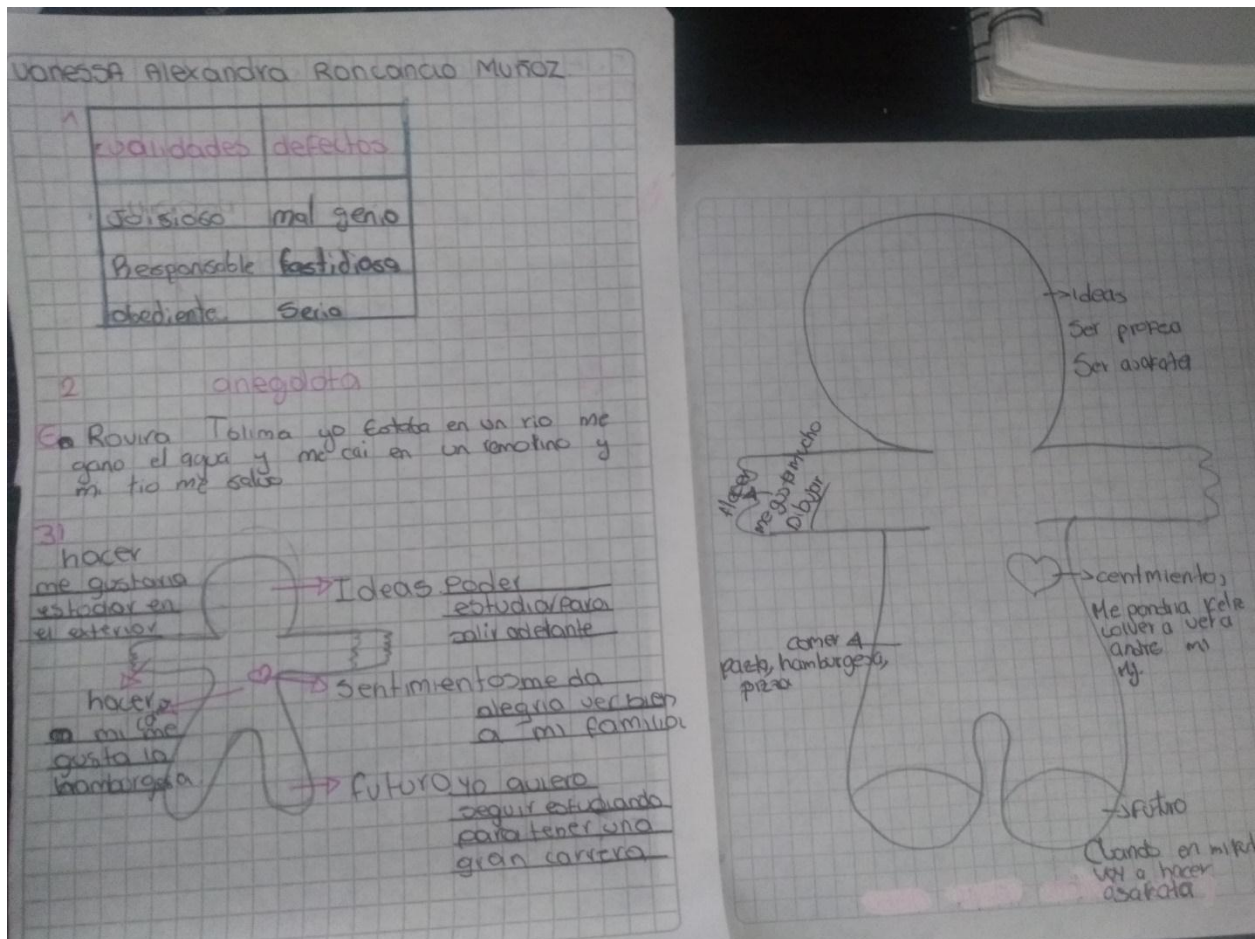 vanessA Alexandra Roncancio Muñoz
1
cualidades defectos
Jvisioso mal genio
Responsable fastidiosa
obediente Seria
2 anegdota
En Rovira Tolima yo Estaba en un rio me
gano el agua y me cai en un remolino y
mi tio me salvo
3)
hacer
me gustaria
estodar en
el exterior
Ideas Poder
estudiar para
salir adelante
hacer
a mi me
gusta la
hamburgesa
sentimientos me da
alegria ver bien
a mi familia
futuro yo quiero
seguir estudiando
para tener una
gran carrera
ideas
Ser profea
Ser asafata
Hacer
me gusta mucho
Dibujar
centimiento,
Me pondria
volver a ver a
andre mi
comer
pasta, hamburgesa,
pizza
Futuro
Cuando en
voy a hacer
asafata